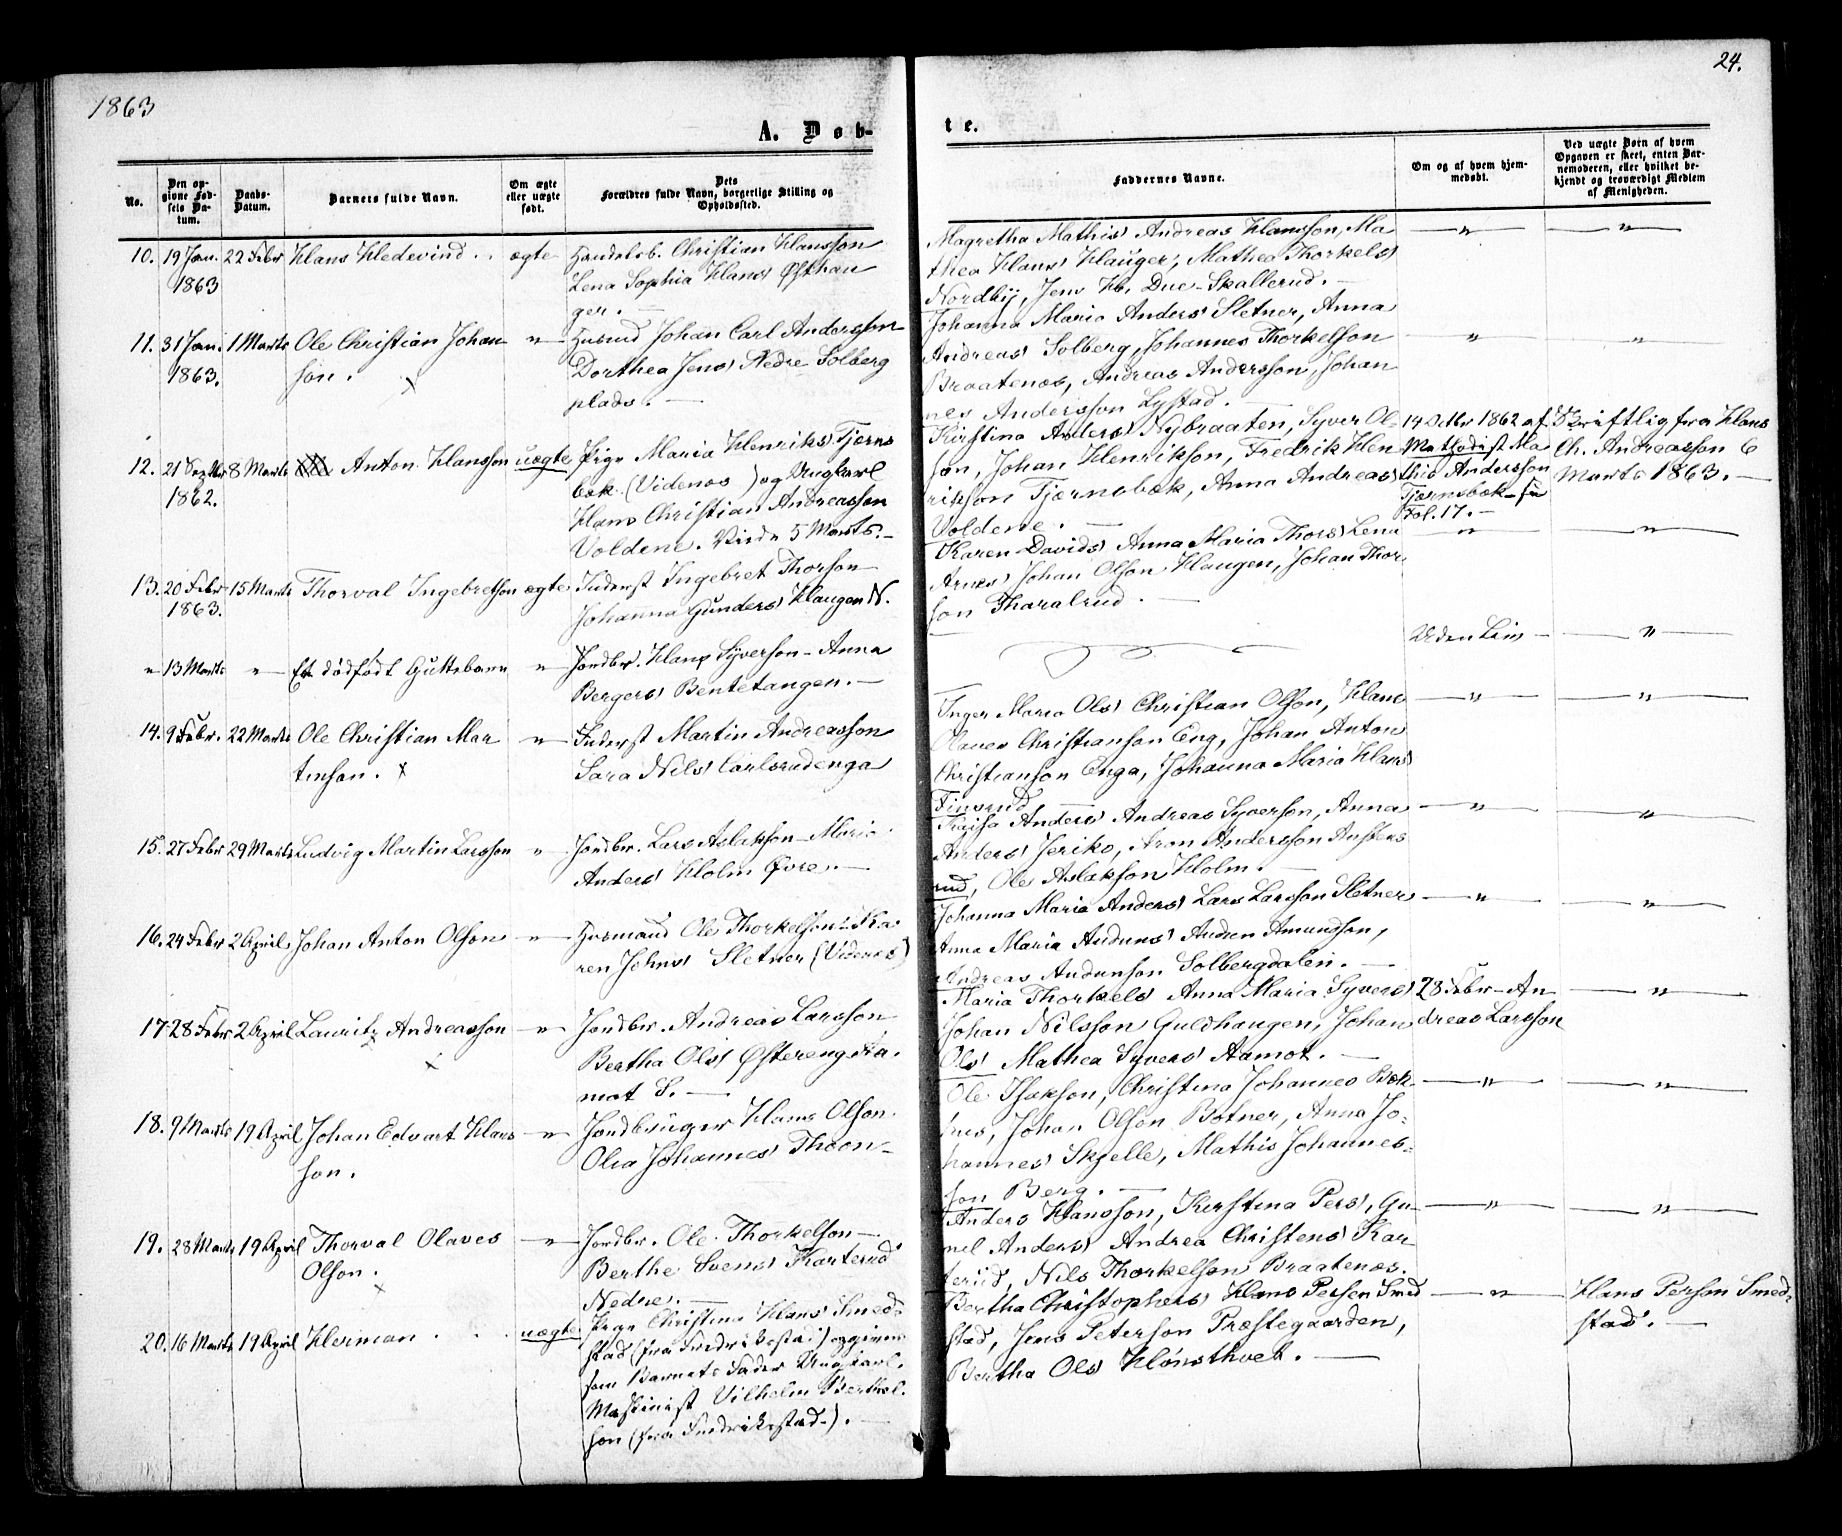 1863
24.
A. Døb-
te.
No.
Den op-
givne Fød-
sels Da-
tum.
Daabs-
Datum.
Barnets fulde Navn.
Om ægte
eller uægte
født.
Dets
Forældres fulde Navn, borgerlige Stilling og
Opholdssted.
Faddernes Navne.
Om og af hvem hjem-
medøbt.
Ved uægte Børn af hvem
Opgaven er skeet, enten Bar-
nemoderen, eller hvilket be-
kjendt og troværdigt Medlem
af Menigheden.
10. 19 Jan. 22 Febr Hans Hedevind . . ægte Handelsb. Christian Hansson
1863 Lena Sophia Hans' Østhau
gen. —
Magretha Mathis' Andreas Hansson, Ma — " — — " —
thea Hans' Hauger, Mathea Thorkels'
Nordby, Jens H. Due - Skallerud. —
11. 31 Jan. 1 Marts Ole Christian Johan " Husmd Johan Carl Andersson
1863. son. x Dorthea Jens' Nedre Solberg
plads. —
Johanna Maria Anders' Sletner, Anna
Andreas' Solberg, Johannes Thorkelson — " — "
Braatenæs, Andreas Andersson, Johan
nes Andersson Lystad. —
12. 21 Septbr 8 Marts Anton Hansson uægte Pige Maria Henriks' Tjerns
1862. bæk (Videnæs) og Ungkarl
Hans Christian Andreasson
Voldene. 5 Marts. -
Kirstina Anders' Nybraaten, Syver Ol- 14 Octbr 1862 af Skriftlig fra Hans
son, Johan Henrikson, Fredrik Hen Methodist Ma Ch. Andreasson 6
rikson Tjernsbæk, Anna Andreas' this Andersson Marts 1863. —
Voldene. — Tjernsbæk - se
Fol. 17. —
13. 20 Febr 15 Marts Thorval Ingebretson ægte Inderst Ingebret Thorson
1863. Johanna Gunders' Haugen N.
Karen Davids' Anna Maria Thors' Lena — " — — " —
Arnes' Johan Olson Haugen, Johan Thor
son Tharalrud. —
" 13 Marts " Et dødfødt Guttebarn " Jordbr. Hans Syverson - Anna
Bergers' Bentetangen. —
Uden Liv — — " —
14. 9 Febr. 22 Marts Ole Christian Mar " Inderst Martin Andreasson
tinson. x Sara Nils' Carlsrudenga
Inger Maria Ols' Christian Olson, Hans — " — — " —
Olaves Christianson Eng, Johan Anton
Christianson Enga, Johanna Maria Hans'
Finsrud —
15. 27 Febr 29 Marts Ludvig Martin Larsson " Jordbr. Lars Aslakson - Maria
Anders' Holm Øvre. —
Kaisa Anders' Andreas Syverson, Anna — " — — " —
Anders' Jeriko, Aron Andersson Austens
rud, Ole Aslakson Holm. —
16. 24 Febr 2 April Johan Anton Olson " Husmand Ole Thorkelson - Ka
ren Johns' Sletner (Videnæs)
Johanna Maria Anders' Lars Larsson Sletner — " — — " —
Anna Maria Auduns' Audsen Amundson,
Andreas Audunson Solbergdalen. —
17. 28 Febr 2 April Lauritz Andreasson " Jordbr. Andreas Larsson
x Bertha Ols' Østereng Aa.
mot S. —
Maria Thorkels' Anna Maria Syvers' 28 Febr - An — " —
Johan Nilsson Guldhaugen, Johan dreas Larsson
Ols' Mathea Syvers' Aamot. —
18. 9 Marts 19 April Johan Edvart Hans " Jordbruger Hans Olson
son. Olea Johannes' Thoon -
Ole Isakson, Christina Johannes' Bæk- — " — — " —
Johan Olson Botner, Anna Jo-
hannes' Skjelle, Mathis Johannes-
son Berg. —
19. 28 Marts 19 April Thorval Olaves " Jordbr. Ole Thorkelson —
Olson. x Berthe Svens' Karterud
Nedre. —
Anders Hansson, Kirstina Pers', Gu- — " — — " —
nel Anders' Andrea Christens' Kar
terud, Nils Thorkelson Braatenæs.
20. 16 Marts 19 April Herman . . . uægte Pige Christina Hans' Smed-
stad (fra Fredrikstad) opgiven
som Barnets Fader Ungkarl.
Maskinist Vilhelm Berthel.
son (fra Fredrikstad). —
Bertha Christophers' Hans Persen Smed — " — Hans Person Smed-
stad, Jens Peterson Præstegaarden, stad. —
Bertha Ols' Hønsthvet. —